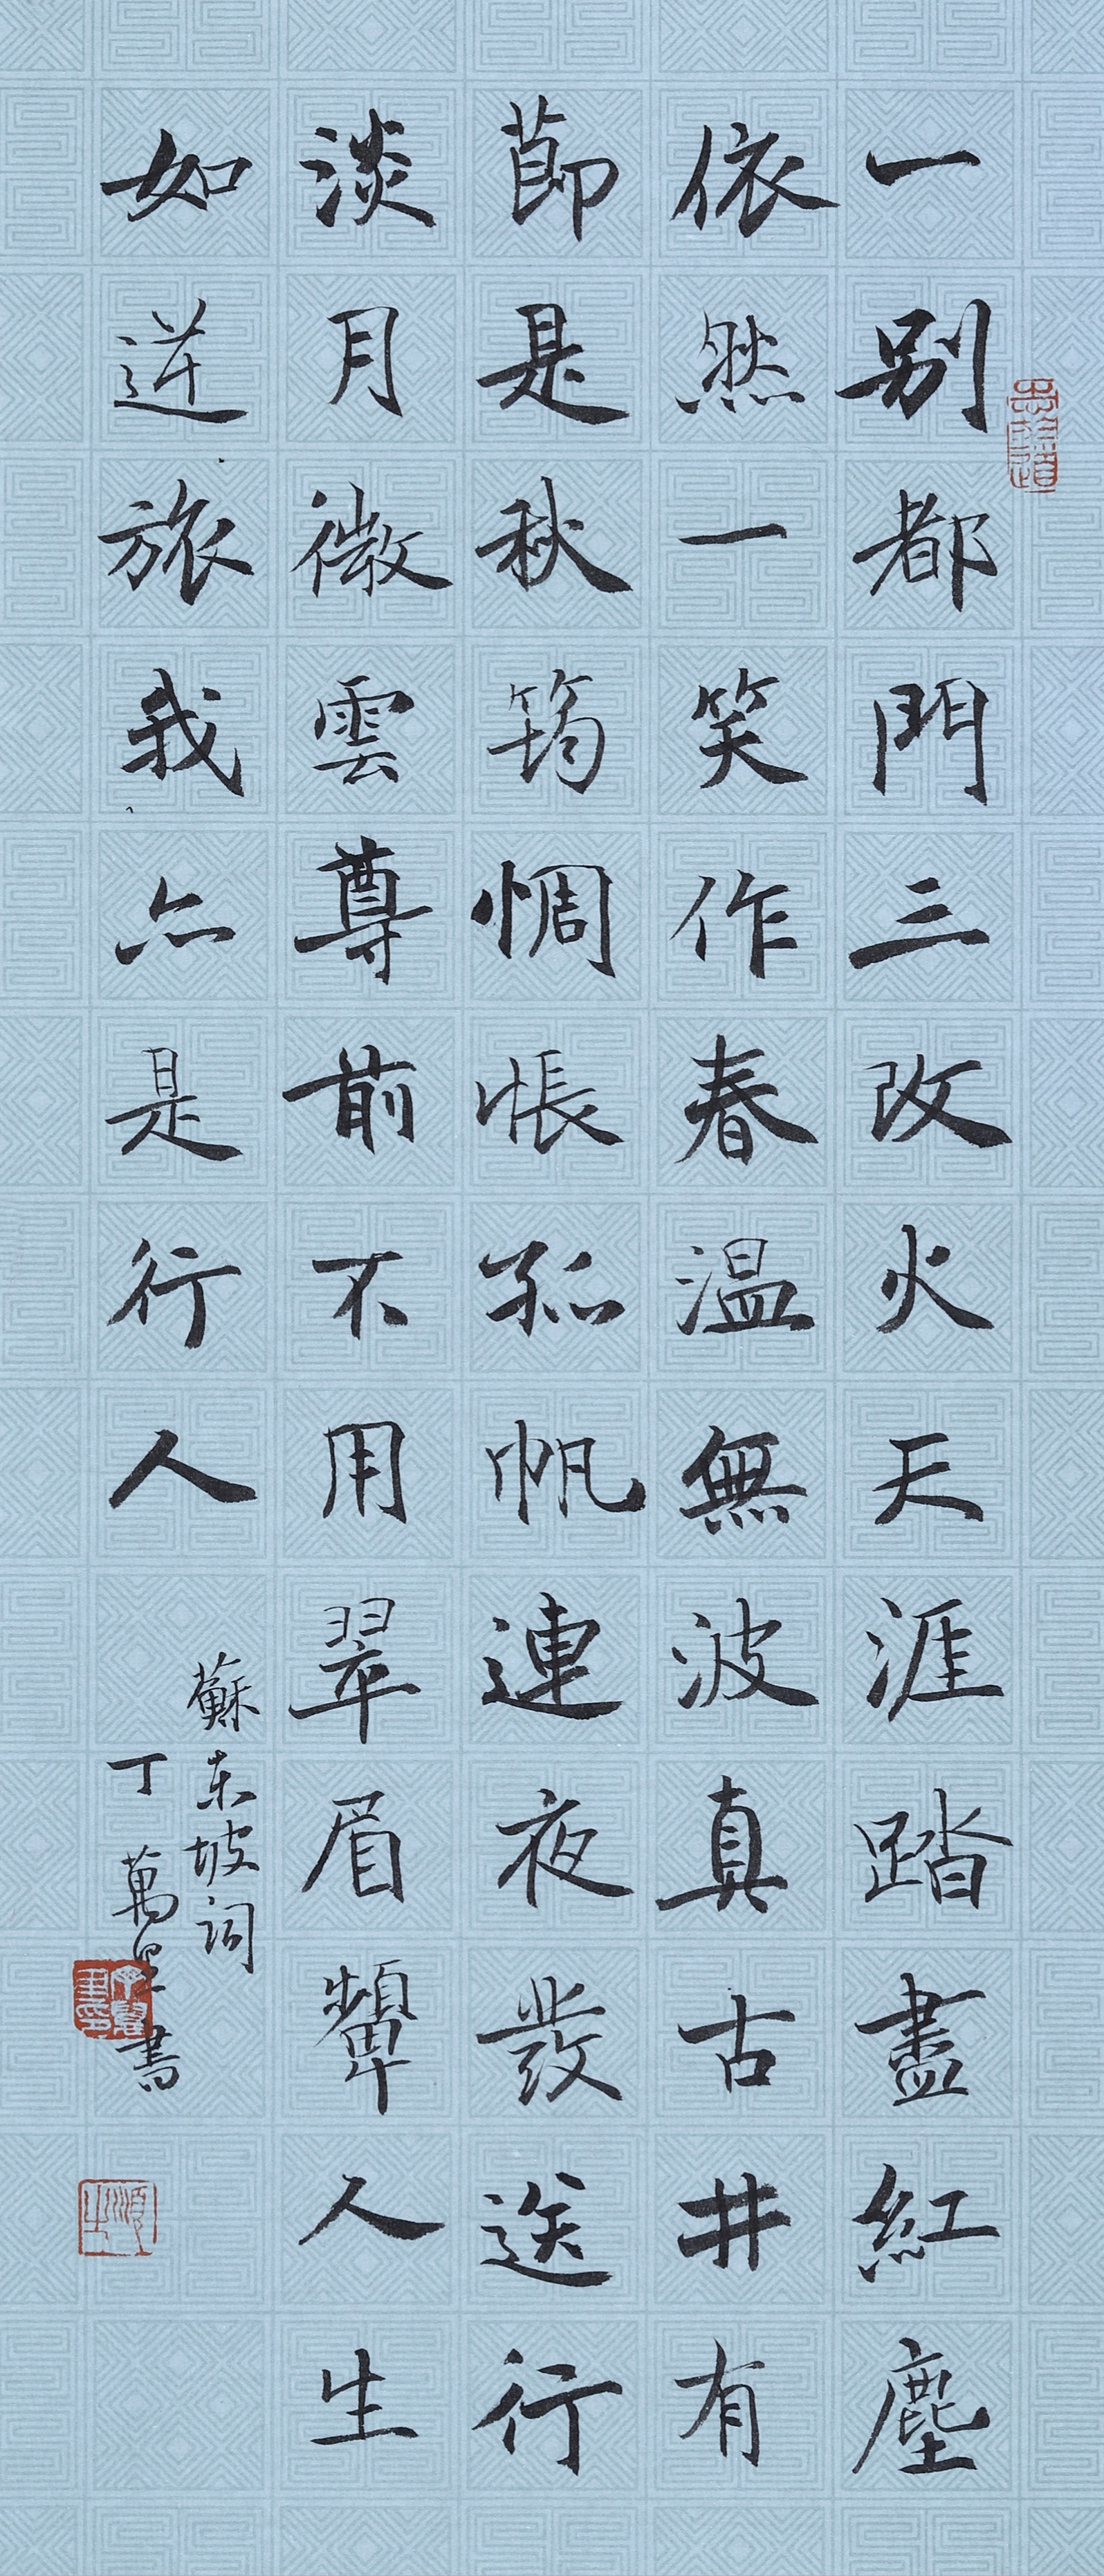 一別都門三改火天涯踏盡紅塵
依然一笑作春溫無波真古井有
節是秋筠惆悵孤帆連夜發送行
淡月微雲尊前不用翠眉顰人生
如逆旅我亦是行人
蘇东坡詞
丁萬里書